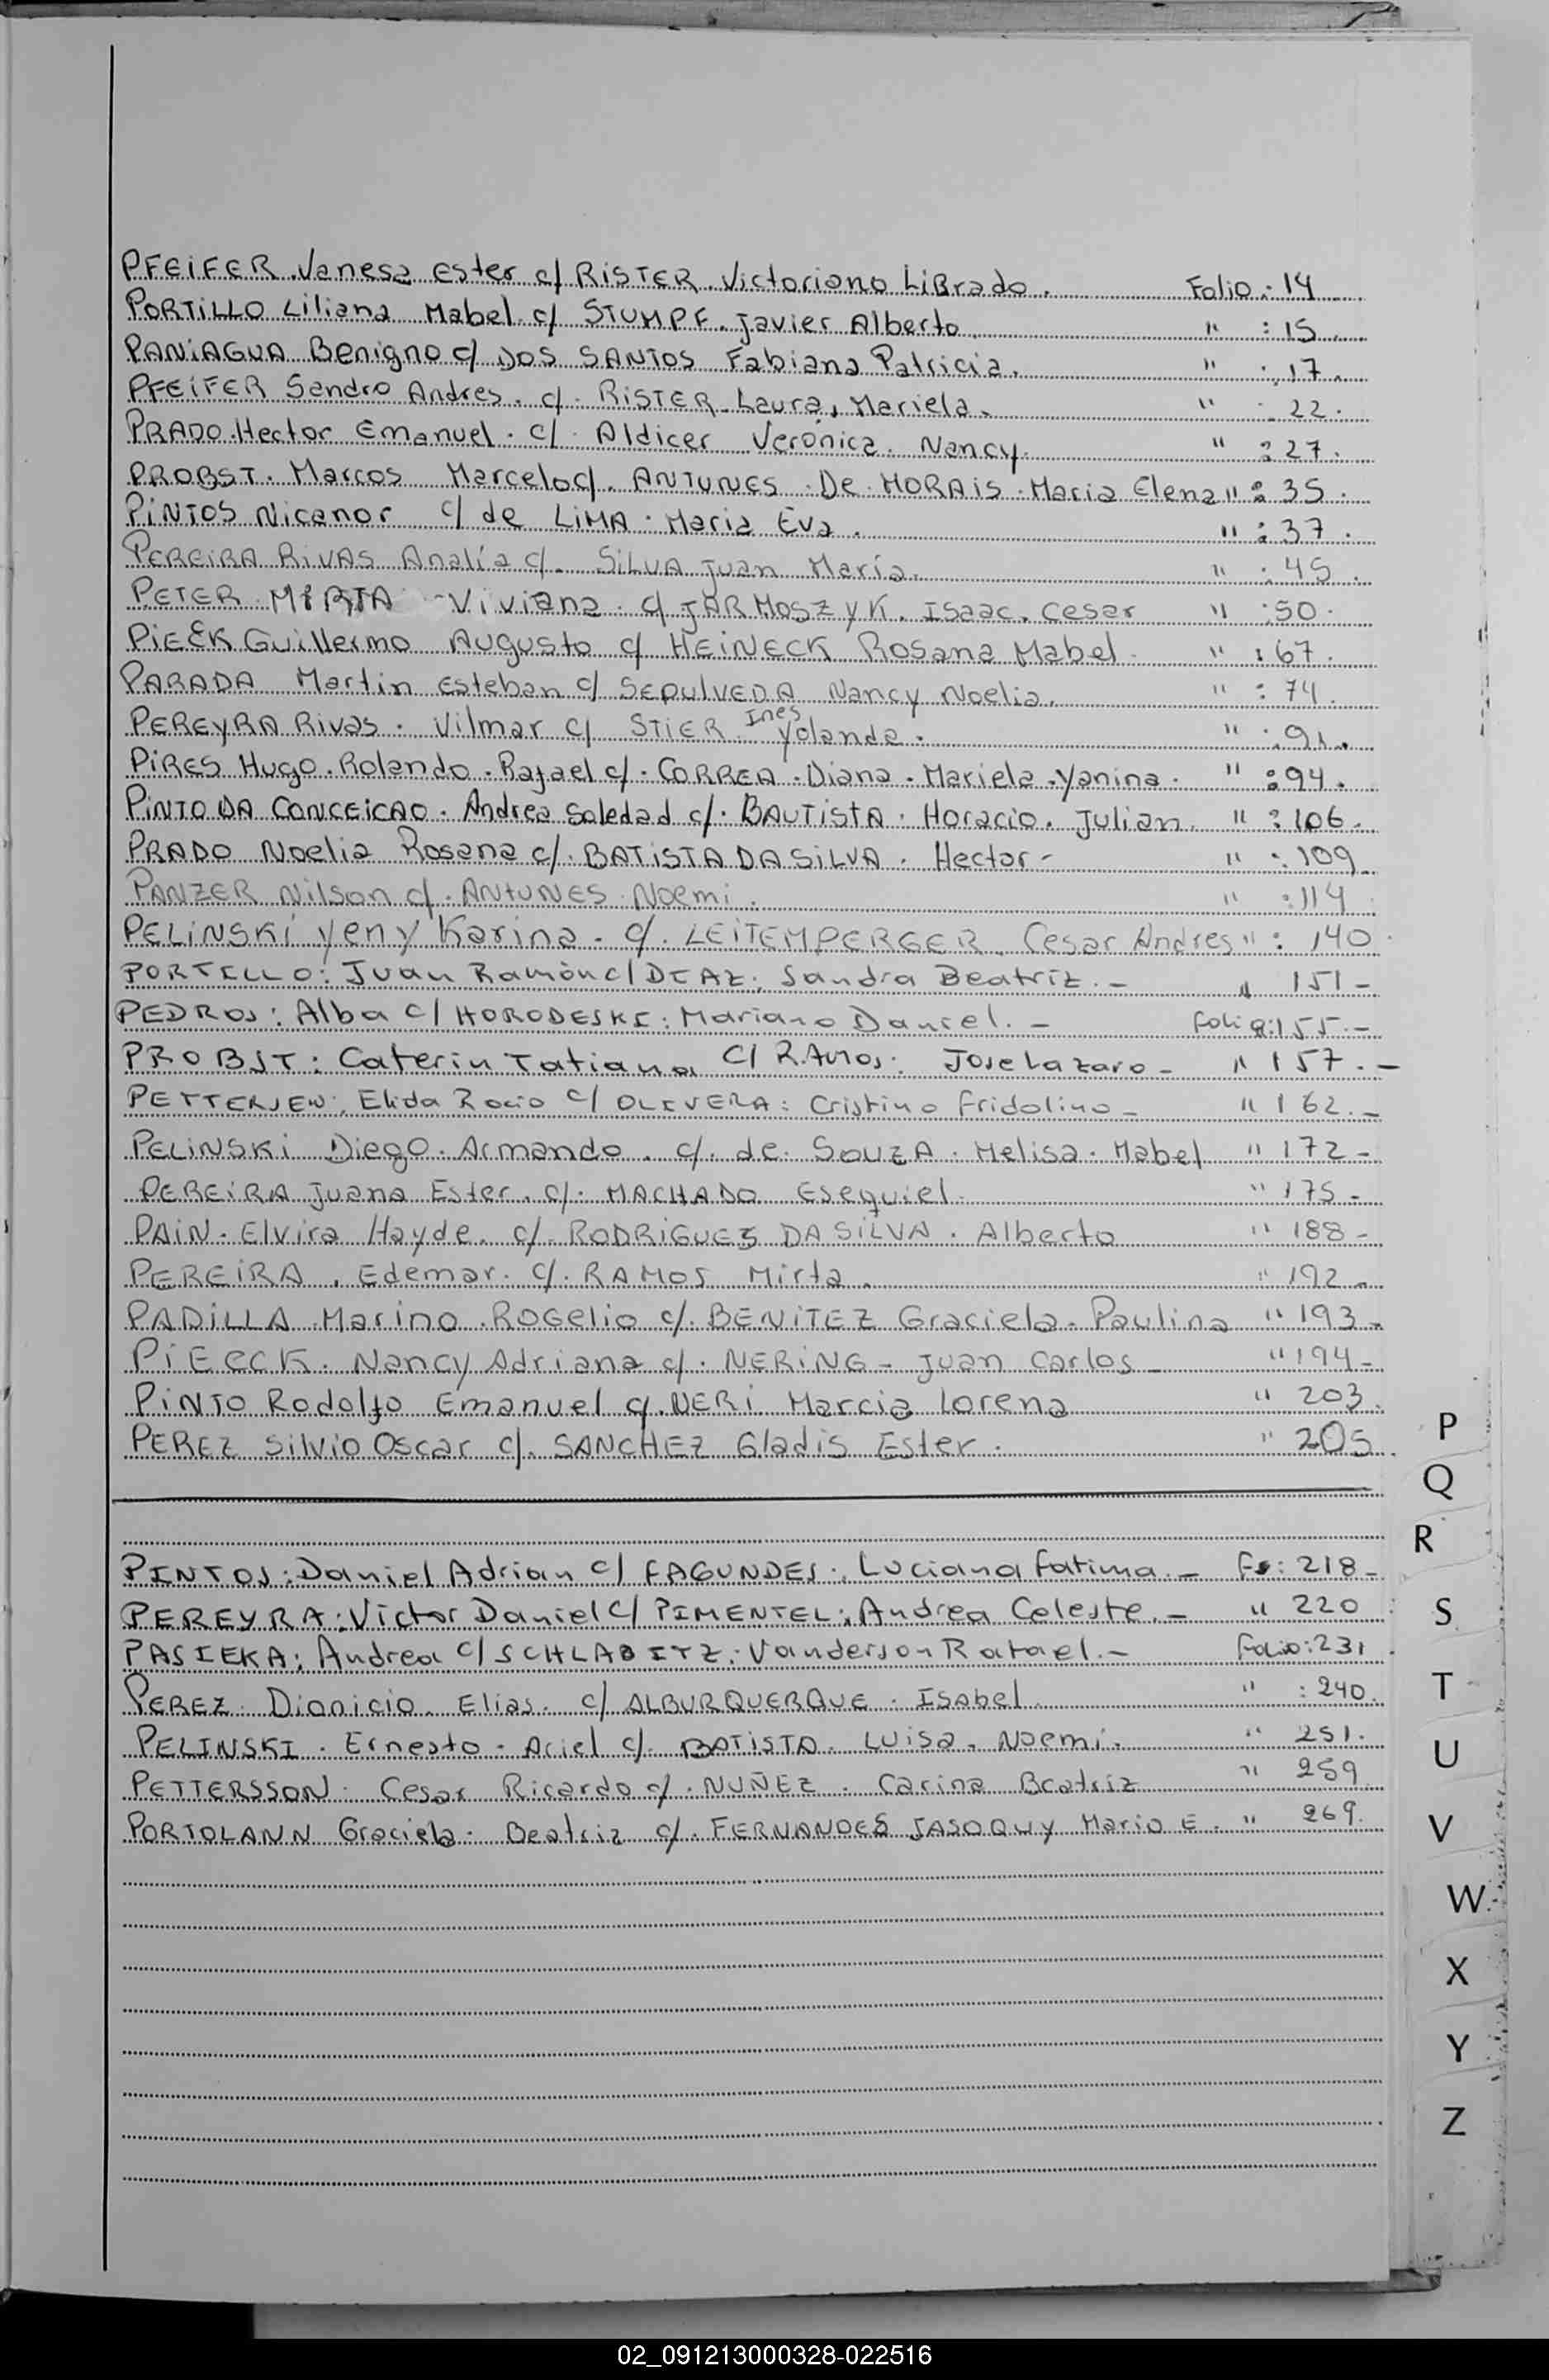 PFEIFER. Vanesa Ester c/ RISTER. Victoriano Librado. Folio: 14
PORTILLO Liliana Mabel c/ STUMPF. Javier Alberto " : 15
PANIAGUA Benigno c/ DOS SANTOS Fabiana Patricia. " : 17.
PFEIFER Sandro Andres. c/. RISTER Laura, Mariela. " : 22.
PRADO. Hector Emanuel. c/. Aldicer Verónica. Nancy. " : 27.
PROBST. Marcos Marcelo c/. ANTUNES. De. MORAIS. Maria Elena " : 35.
PINTOS Nicanor c/ de LIMA. Maria Eva. " : 37.
PEREIRA RIVAS Analía c/. SILVA Juan María. " : 45.
PETER MIRTA Viviana. c/ JARMOSZYK. Isaac. Cesar " : 50.
PIEEK Guillermo Augusto c/ HEINECK Rosana Mabel. " : 67.
PARADA Martin Esteban c/ SEPULVEDA Nancy Noelia. " : 74.
PEREYRA Rivas. Vilmar c/ STIER Ines Yolanda. " : 91.
PIRES Hugo. Rolando. Rafael c/. CORREA. Diana. Mariela. Yanina. " : 94.
PINTO DA CONCEICAO. Andrea Soledad c/. BAUTISTA. Horacio. Julian. " : 106.
PRADO Noelia Rosana c/. BATISTA DA SILVA. Hector- " : 109
PANZER Nilson c/. ANTUNES. Noemi. " : 114
PELINSKI Yeny Karina. c/. LEITEMPERGER. Cesar Andres " : 140.
PORTELLO: Juan Ramòn c/ DIAZ: Sandra Beatriz.- " 151-
PEDROS: Alba c/ HORODESKI: Mariano Daniel.- Folio: 155.-
PROBST: Caterin Tatiana c/ RAMOS: Jose Lazaro- " 157.-
PETTERSEN: Elida Rocio c/ OLIVERA: Cristino Fridolino- " 162.-
PELINSKI Diego. Armando. c/. de. SOUZA. Melisa. Mabel " 172-
PEREIRA Juana Ester. c/. MACHADO Esequiel. " 175-
PAIN. Elvira Hayde. c/. RODRIGUES DA SILVA. Alberto " 188-
PEREIRA. Edemar. c/. RAMOS Mirta. " 192-
PADILLA. Marino. ROGelio c/. BENITEZ Graciela. Paulina " 193-
PIEECK. Nancy Adriana c/. NERING- Juan Carlos- " 194-
PINTO Rodolfo Emanuel c/. NERI Marcia Lorena " 203.
PEREZ Silvio Oscar c/. SANCHEZ Gladis Ester. " 205.
PINTOS: Daniel Adrian c/ FAGUNDES: Luciana Fatima.- Fs: 218-
PEREYRA: Victor Daniel c/ PIMENTEL: Andrea Celeste.- " 220
PASIEKA: Andrea c/ SCHLABITZ: Vanderson Rafael.- Folio: 231.
PEREZ. Dionicio. Elias. c/ ALBURQUERQUE. Isabel " : 240.
PELINSKI. Ernesto. Ariel c/. BATISTA. Luisa. Noemi. " 251.
PETTERSSON. Cesar Ricardo c/. NUÑEZ. Carina Beatriz " 259
PORTOLANN Graciela. Beatriz c/. FERNANDES JASOQUY Mario E. " 269.
P
Q
R
S
T
U
V
W
X
Y
Z
02_091213000328-022516